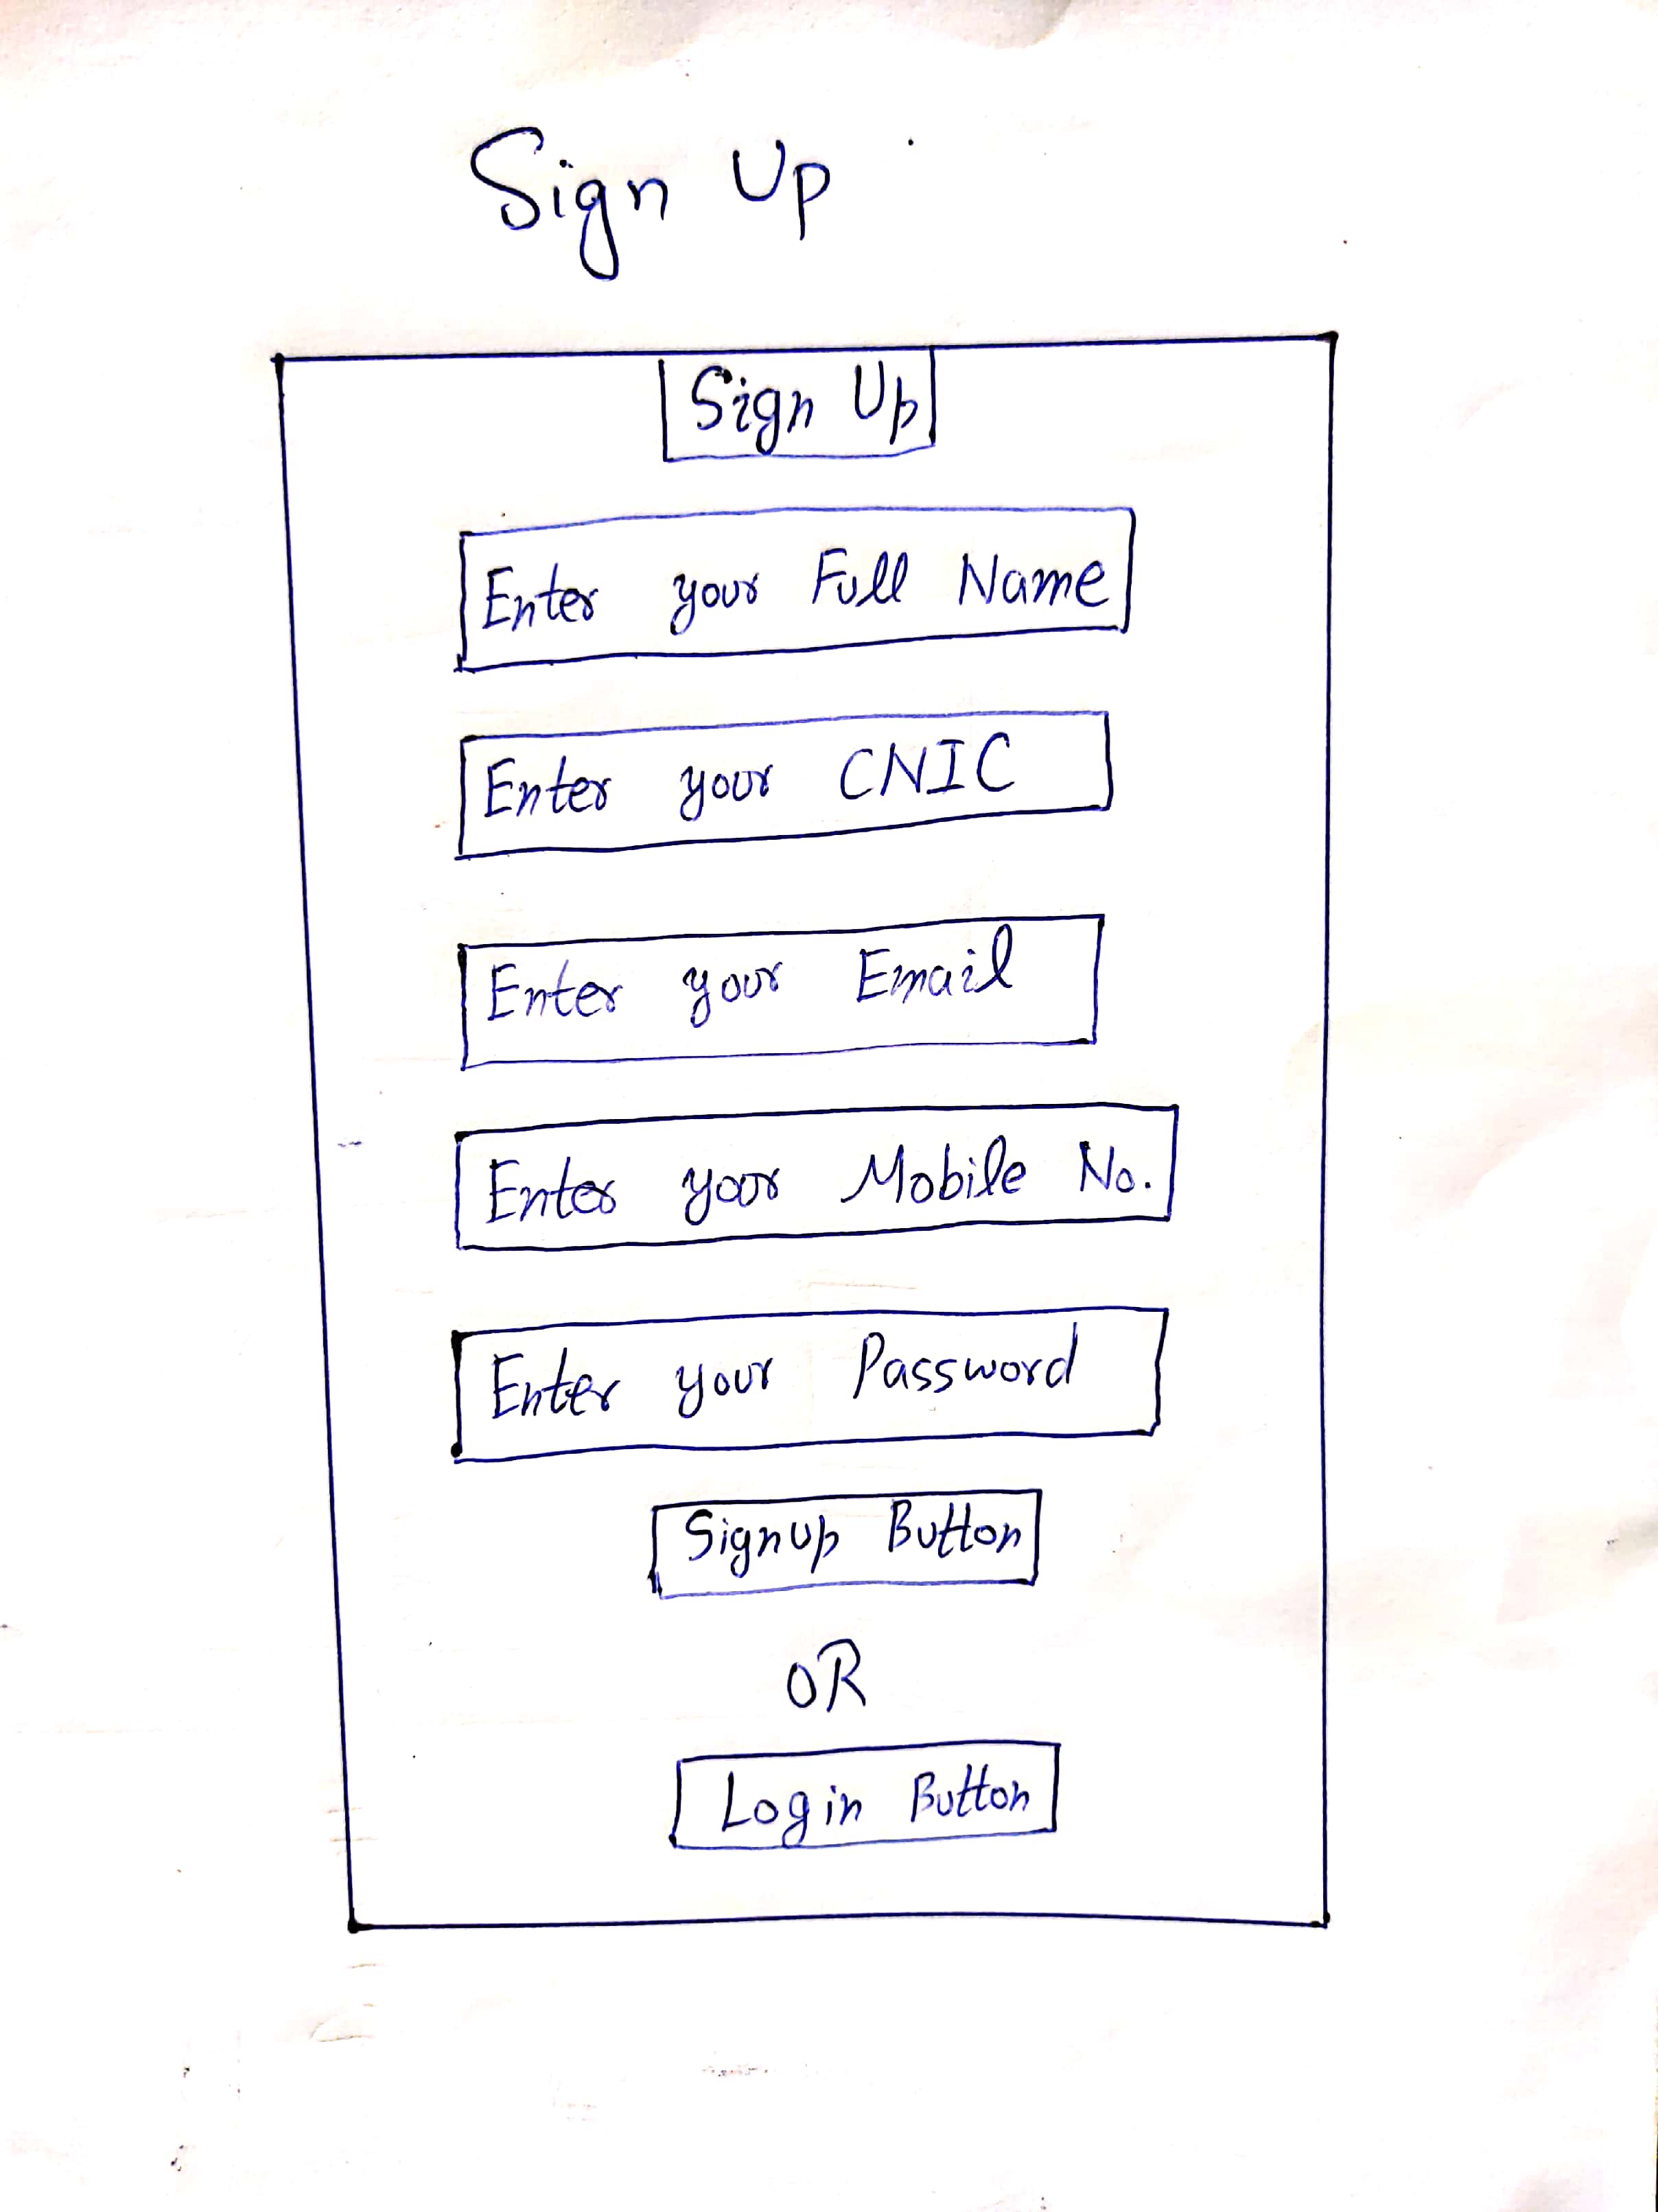 Sign Up
Sign Up
Enter your Full Name
Enter your CNIC
Enter your Email
Enter your Mobile No.
Enter your Password
Signup Button
OR
Login Button